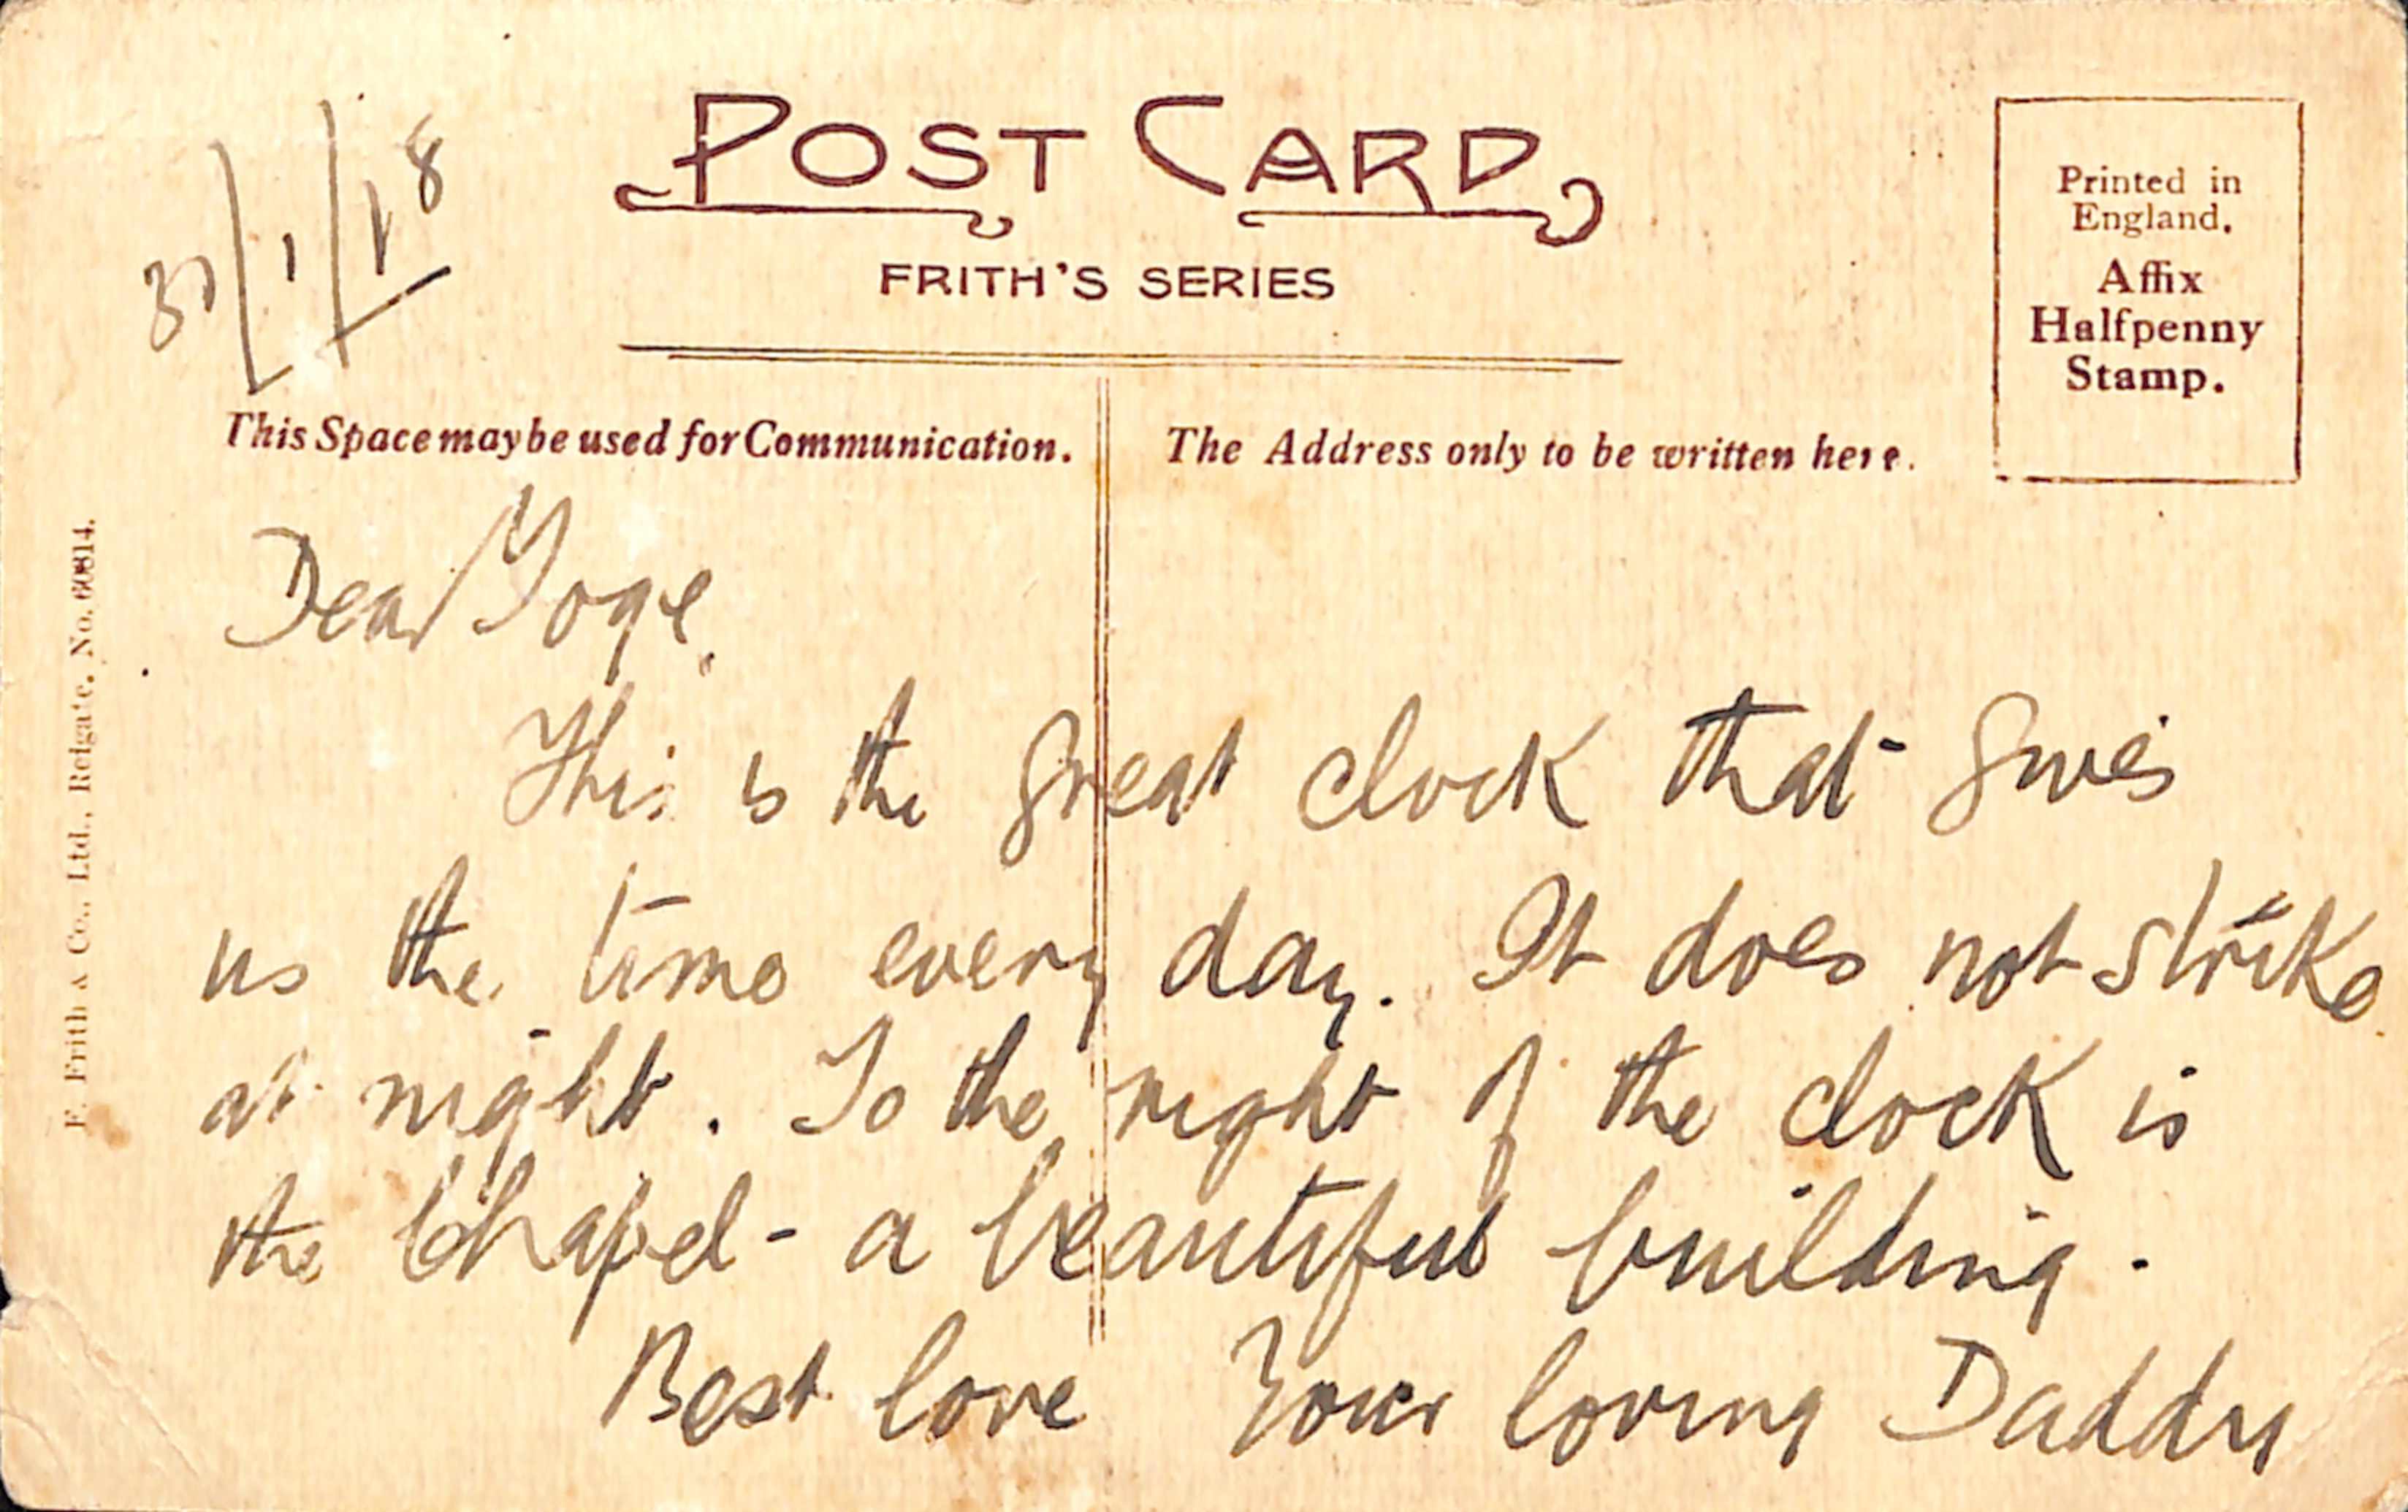 POST CARD
FRITH'S SERIES
Printed in
England.
Affix
Halfpenny
Stamp.
This Space may be used for Communication.
The Address only to be written here.
F. Frith & Co., Ltd., Reigate. No. 60814.
Dear
This is the great clock that gives
us the time every day. It does not strike
at night. To the right of the clock is
the Chapel - a beautiful building.
Best love Your loving Daddy